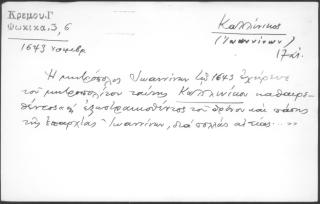 Κρεμου, Γ
Φωκικα, 3, 6
1643 νοεμβρ
Καλλίνικος
(Ἰωαννίνων)
17 αἰ.
Ἡ μητρόπολις Ἰωαννίνων τῷ 1643 ἐχήρευε
τοῦ μητροπολίτου ταύτης Καλλινίκου καθαιρε-
θέντος καὶ ἐξωστρακισθέντος τοῦ θρόνου καὶ πάσης
τῆς ἐπαρχίας Ἰωαννίνων, διὰ πολλὰς αἰτίας....»